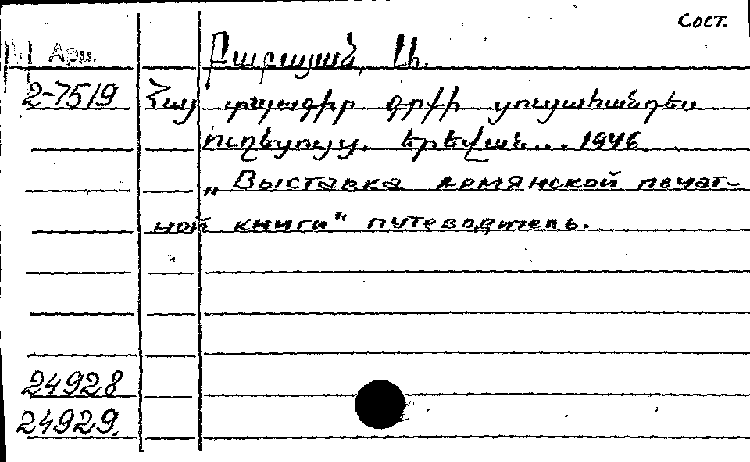 Сост.
Арм.
Բաբայան, Ա.
2-7519 Հայ տպագիր գրքի ցուցահանդես
ուղեցույց. Երևան... 1946.
„Выставка армянской печат-
ной книги“ путеводитель.
24928
24929.